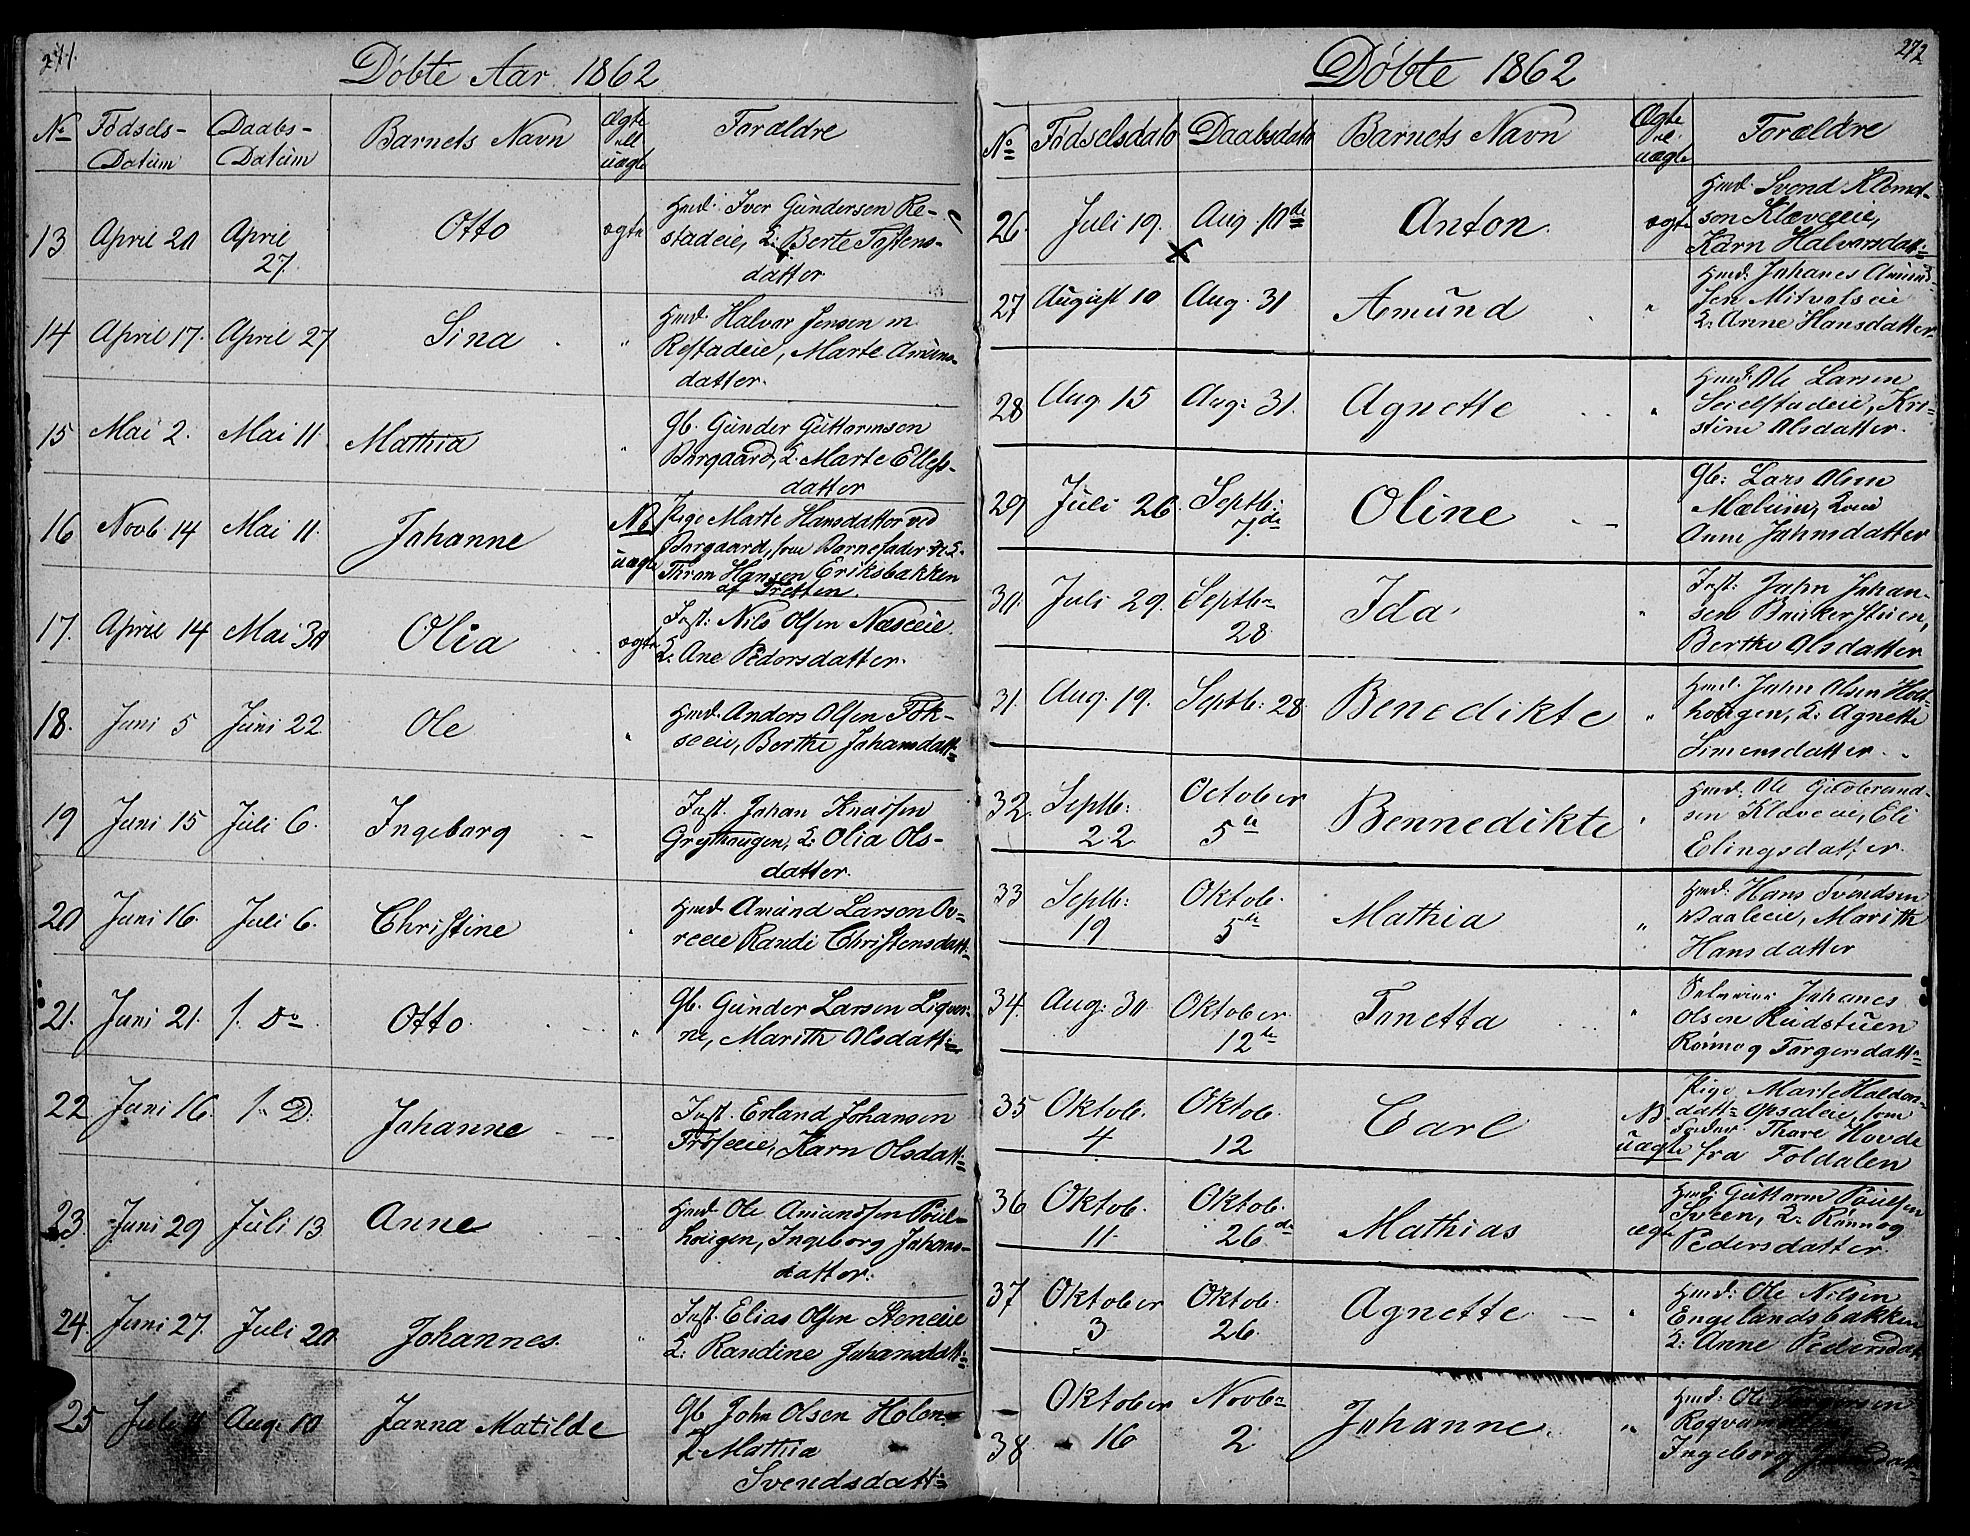 271.
Döbte Aar 1862
No Födsels-Datum Daabs-Datum Barnets Navn Ægte ell uægte Forældre
13 April 20 April 27. Otto ægte Hmd. Iver Gundersen Re-
stadeie, K: Berte Tostens-
datter
14 April 17. April 27 Sina " Hmd Halvor Jensen m.
Restadeie, Marte Amuns-
datter.
15 Mai 2. Mai 11 Mathia " Gb. Gunder Guttormsen
Borgaard, K. Marte Ellefs-
datter
16 Novb 14 Mai 11. Johanne NB uægte Pige Marte Hansdatter ved
Borgaard, som Barnefader
Thron Hansen Eriksbakken
af Tretten.
17. April 14 Mai 30 Olia ægte Inst: Nils Olsen Næseeie.
K. Ane Pedersdatter.
18. Juni 5 Juni 22 Ole " Hmd. Anders Olsen Fok-
seeie, Berthe Johansdatt=
19 Juni 15 Juli 6. Ingeborg Inst. Johan Knudsen
Grythaugen, K: Olia Ols-
datter.
20 Juni 16. Juli 6. Christine " Hmd Amund Larsen Ov-
reeie Randi Christensdatt=
21. Juni 21. f. Do Otto " Gb. Gunder Larsen
Marith Olsdatt=
22 Juni 16. f. D. Johanne Inst. Erland Johansen
Froseeie, Karn Olsdatt=
23. Juni 29 Juli 13 Anne Hmd Ole Amundsen Poul-
hougen, Ingeborg Johans-
datter.
24. Juni 27. Juli 20. Johannes. " Inst. Elias Olsen Steneeie
K: Randine Johansdatt=
25 Juli Aug. 10 Janna Matilde Gb John Olsen Holen
K Mathia
Svendsdatt=
272
Döbte 1862
No Födselsdato Daabsdato Barnets Navn Ægte el. uægte Forældre
26. Juli 19. Aug. 10de Anton. ægte Hmd. Svend Klemed-
son Klæveeie,
Karn Halvorsdatt=
27 August 10 Aug. 31 Amund " Hmd: Johanes Amund-
sen
K. Anne Hansdatter
28 Aug 15 Aug: 31. Agnette " Hmd: Ole Larsen
Seielstadeie, Kri-
stine Olsdatter.
29 Juli 26. Septb: 7de Oline Gb: Lars Olsen
Mælum, Kone
Anne Johnsdatter
30. Juli 29. Septb= 28 Ida. " Inst: John Johan-
sen
Berthe Olsdatter
31. Aug. 19. Septb: 28 Benedikte " Hmd. John Olsen Holt-
hougen, K: Agnette
Simensdatter.
32. Septb: 22 October 5te Bennedikte " Hmd: Ole Gildbrand-
sen Klæveeie, Eli
Elingsdatter.
33 Septb: 19 Oktob. 5te Mathia " Hmd: Hans Svendsen
Vaaleeie, Marith
Hansdatter
34. Aug: 30. Oktober 12te Tonetta " Johanes
Olsen Rudstuen
Rönnog Torgersdatt=
35 Oktob. 4 Oktob. 12 Carl NB. uægte Pige Marte Haldors-
datt= Opsaleie, som
Fader Thore Hovde
fra Foldalen
36 Oktob. 11. Oktob. 26de Mathias ægte Hmd: Guttorm Poulsen
Sveen, K: Rönnog
Pedersdatter.
37 Oktober 3 Oktob: 26. Agnette " Hmd: Ole Nilsen
Engelandsbakken
K: Anne Pedersdatt
38. Oktober 16 Novb= 2 Johanne. " Hmd: Ole Torgersen
Ingeborg